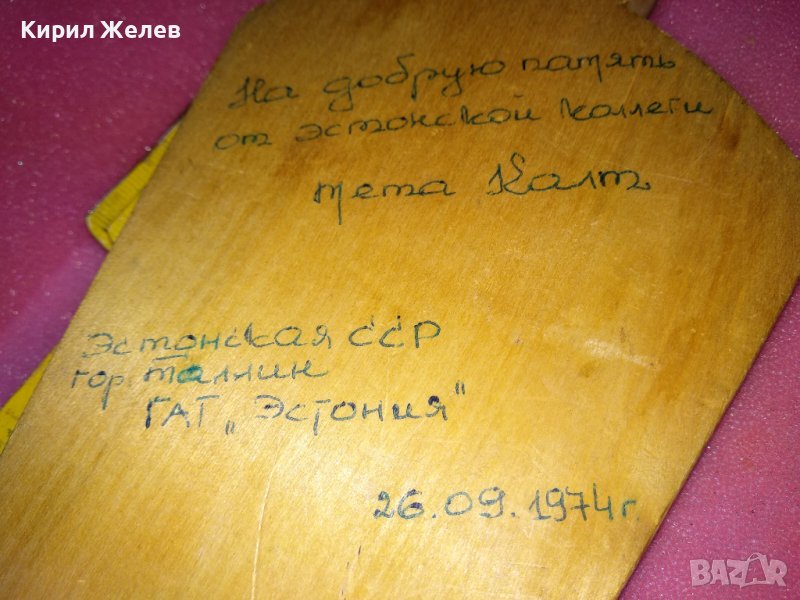 Кирил Желев
На добрую память
от эстонской коллеги
тета Калт
Эстонская ССР
гор. Таллин
ГАТ „Эстония"
26.09.1974г.
BAZAR